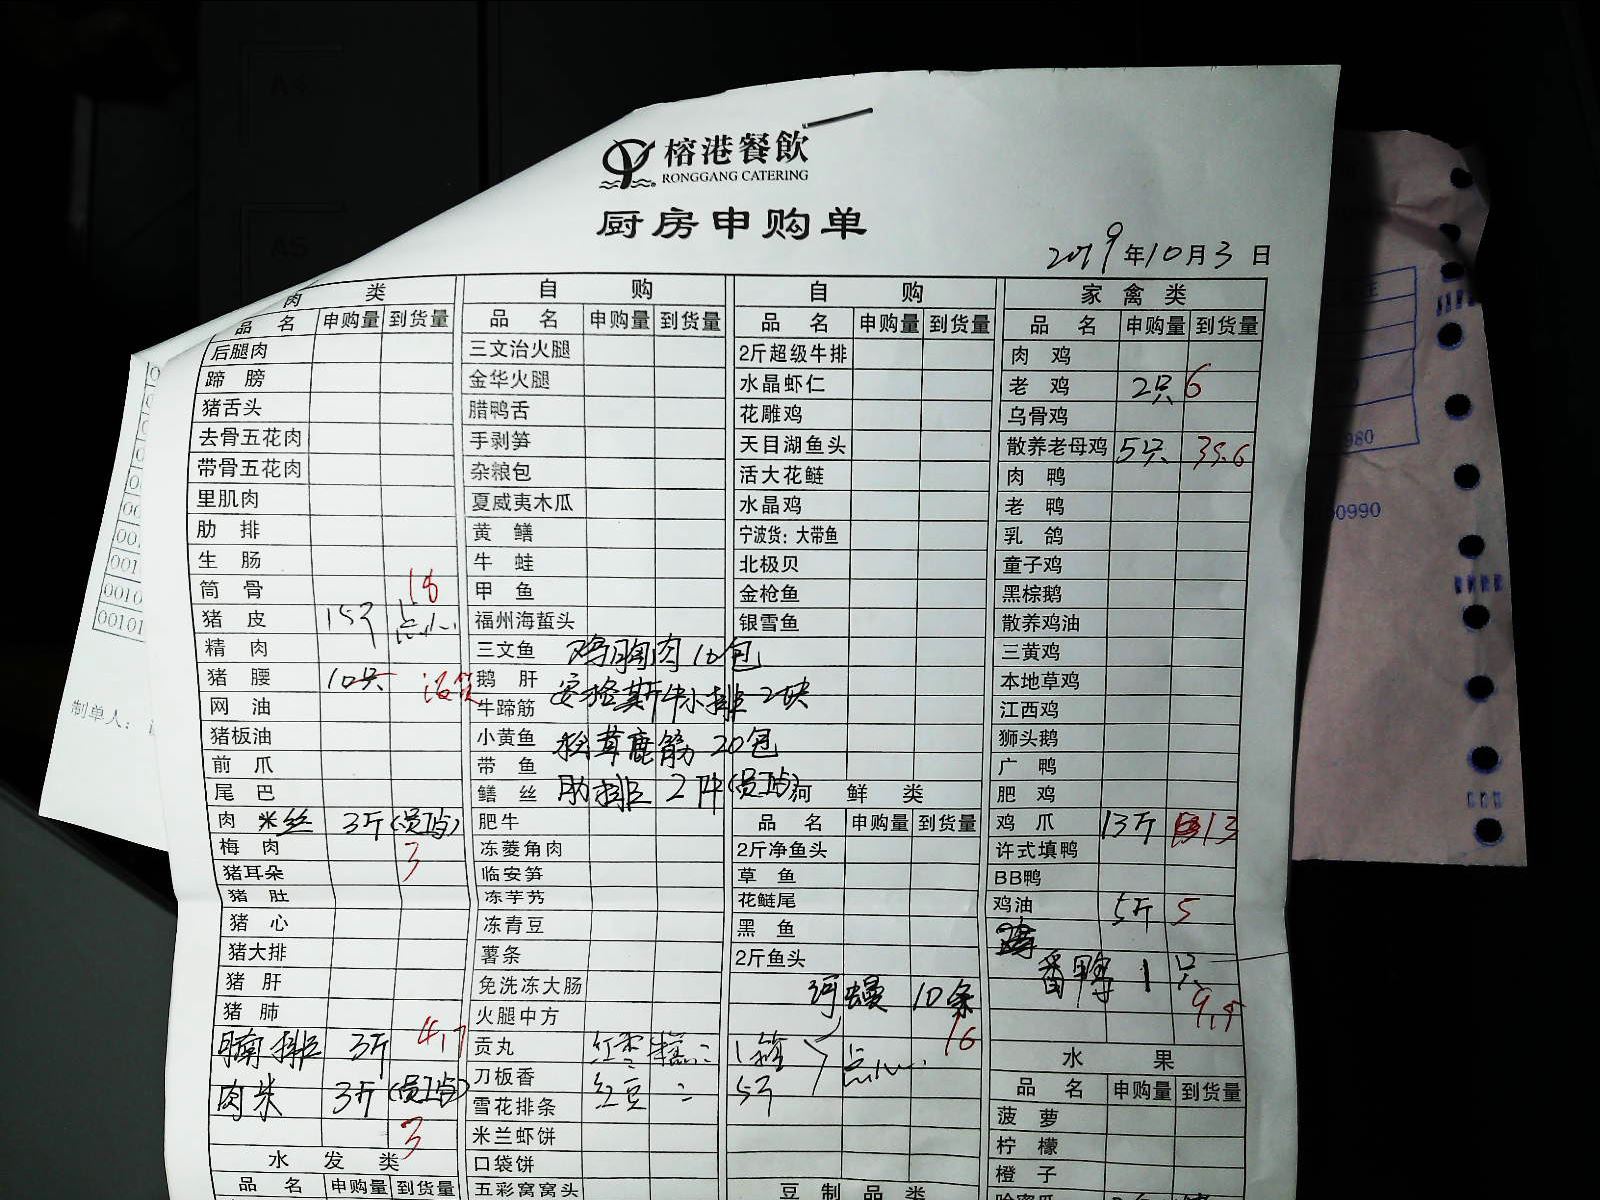 榕港餐飲
RONGGANG CATERING
厨房申购单
2019年10月3日
肉 类
品 名 申购量 到货量
后腿肉
蹄 膀
猪舌头
去骨五花肉
带骨五花肉
里肌肉
肋 排
生 肠
筒 骨 18
猪 皮 15斤 点心
精 肉
猪 腰 10只 没货
网 油
猪板油
前 爪
尾 巴
肉 米 丝 3斤(员工站)
梅 肉 3
猪耳朵
猪 肚
猪 心
猪大排
猪 肝
猪 肺
腩排 3斤 4.7
肉米 3斤(员工站)
3
水 发 类
品 名 申购量 到货量
自 购
品 名 申购量 到货量
三文治火腿
金华火腿
腊鸭舌
手剥笋
杂粮包
夏威夷木瓜
黄 鳝
牛 蛙
甲 鱼
福州海蜇头
三文鱼 鸡胸肉 10包
鹅 肝
牛蹄筋 安格斯牛小排 2块
小黄鱼 松茸鹿筋 20包
带 鱼
鳝 丝 肋排 2件(员工站)
肥牛
冻菱角肉
临安笋
冻芋艿
冻青豆
薯条
免洗冻大肠
火腿中方
贡丸 红枣糕 1箱
刀板香
雪花排条 红豆 5斤 点心
米兰虾饼
口袋饼
五彩窝窝头
自 购
品 名 申购量 到货量
2斤超级牛排
水晶虾仁
花雕鸡
天目湖鱼头
活大花鲢
水晶鸡
宁波货：大带鱼
北极贝
金枪鱼
银雪鱼
河 鲜 类
品 名 申购量 到货量
2斤净鱼头
草 鱼
花鲢尾
黑 鱼
2斤鱼头
河鳗 10条
16
豆 制 品 类
家 禽 类
品 名 申购量 到货量
肉 鸡
老 鸡 2只 6
乌骨鸡
散养老母鸡 5只 35.6
肉 鸭
老 鸭
乳 鸽
童子鸡
黑棕鹅
散养鸡油
三黄鸡
本地草鸡
江西鸡
狮头鹅
广 鸭
肥 鸡
鸡 爪 13斤 13
许式填鸭
BB鸭
鸡油 5斤 5
番鸭 1只
9.5
水 果
品 名 申购量 到货量
菠 萝
柠 檬
橙 子
哈密瓜
制单人：
0010
00101
980
0990